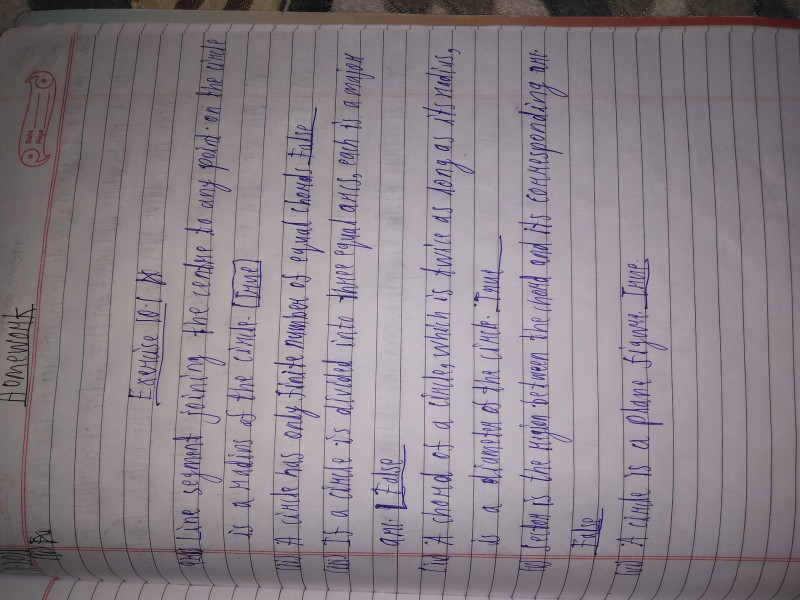 Homework
Date
Page
Exercise 10.1
(i) Line segment joining the centre to any point on the circle
is a radius of the circle. True
(ii) A circle has only finite number of equal chords. False
(iii) If a circle is divided into three equal arcs, each is a major
arc. False
(iv) A chord of a circle, which is twice as long as its radius,
is a diameter of the circle. True
(v) Sector is the region between the chord and its corresponding arc.
False
(vi) A circle is a plane figure. True.